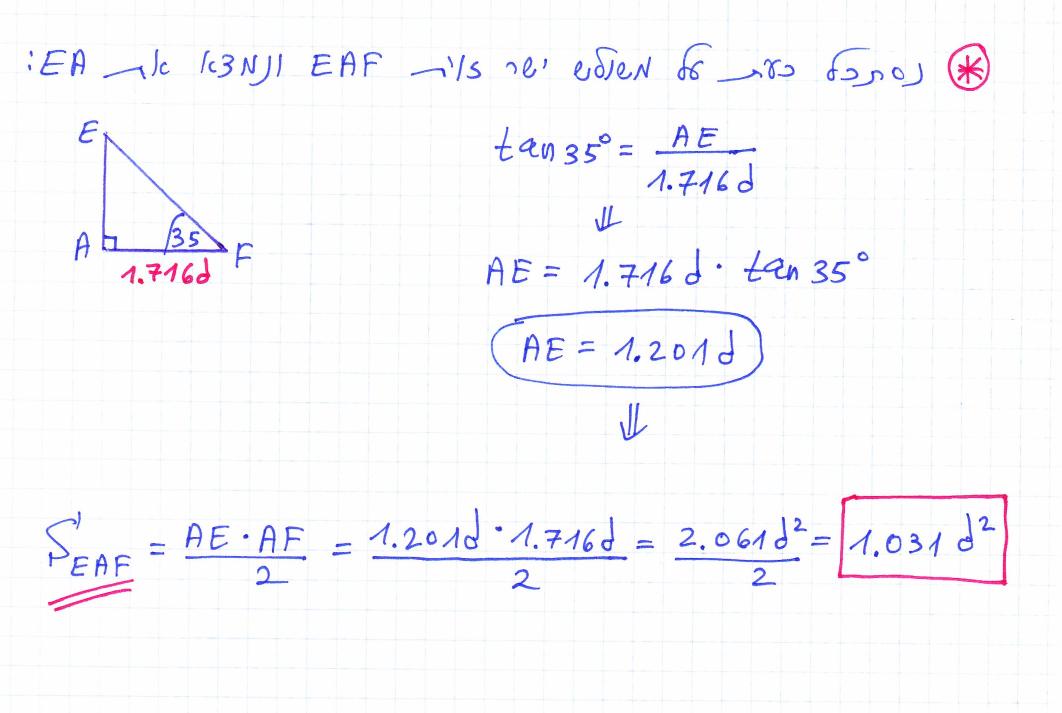 * נסתכל כעת על משולש ישר זווית EAF ונמצא את EA:
E
A
35
F
1.716d
tan35° = AE / 1.716d
⇓
AE = 1.716d · tan35°
AE = 1.201d
⇓
S_EAF = AE · AF / 2 = 1.201d · 1.716d / 2 = 2.061d² / 2 = 1.031d²